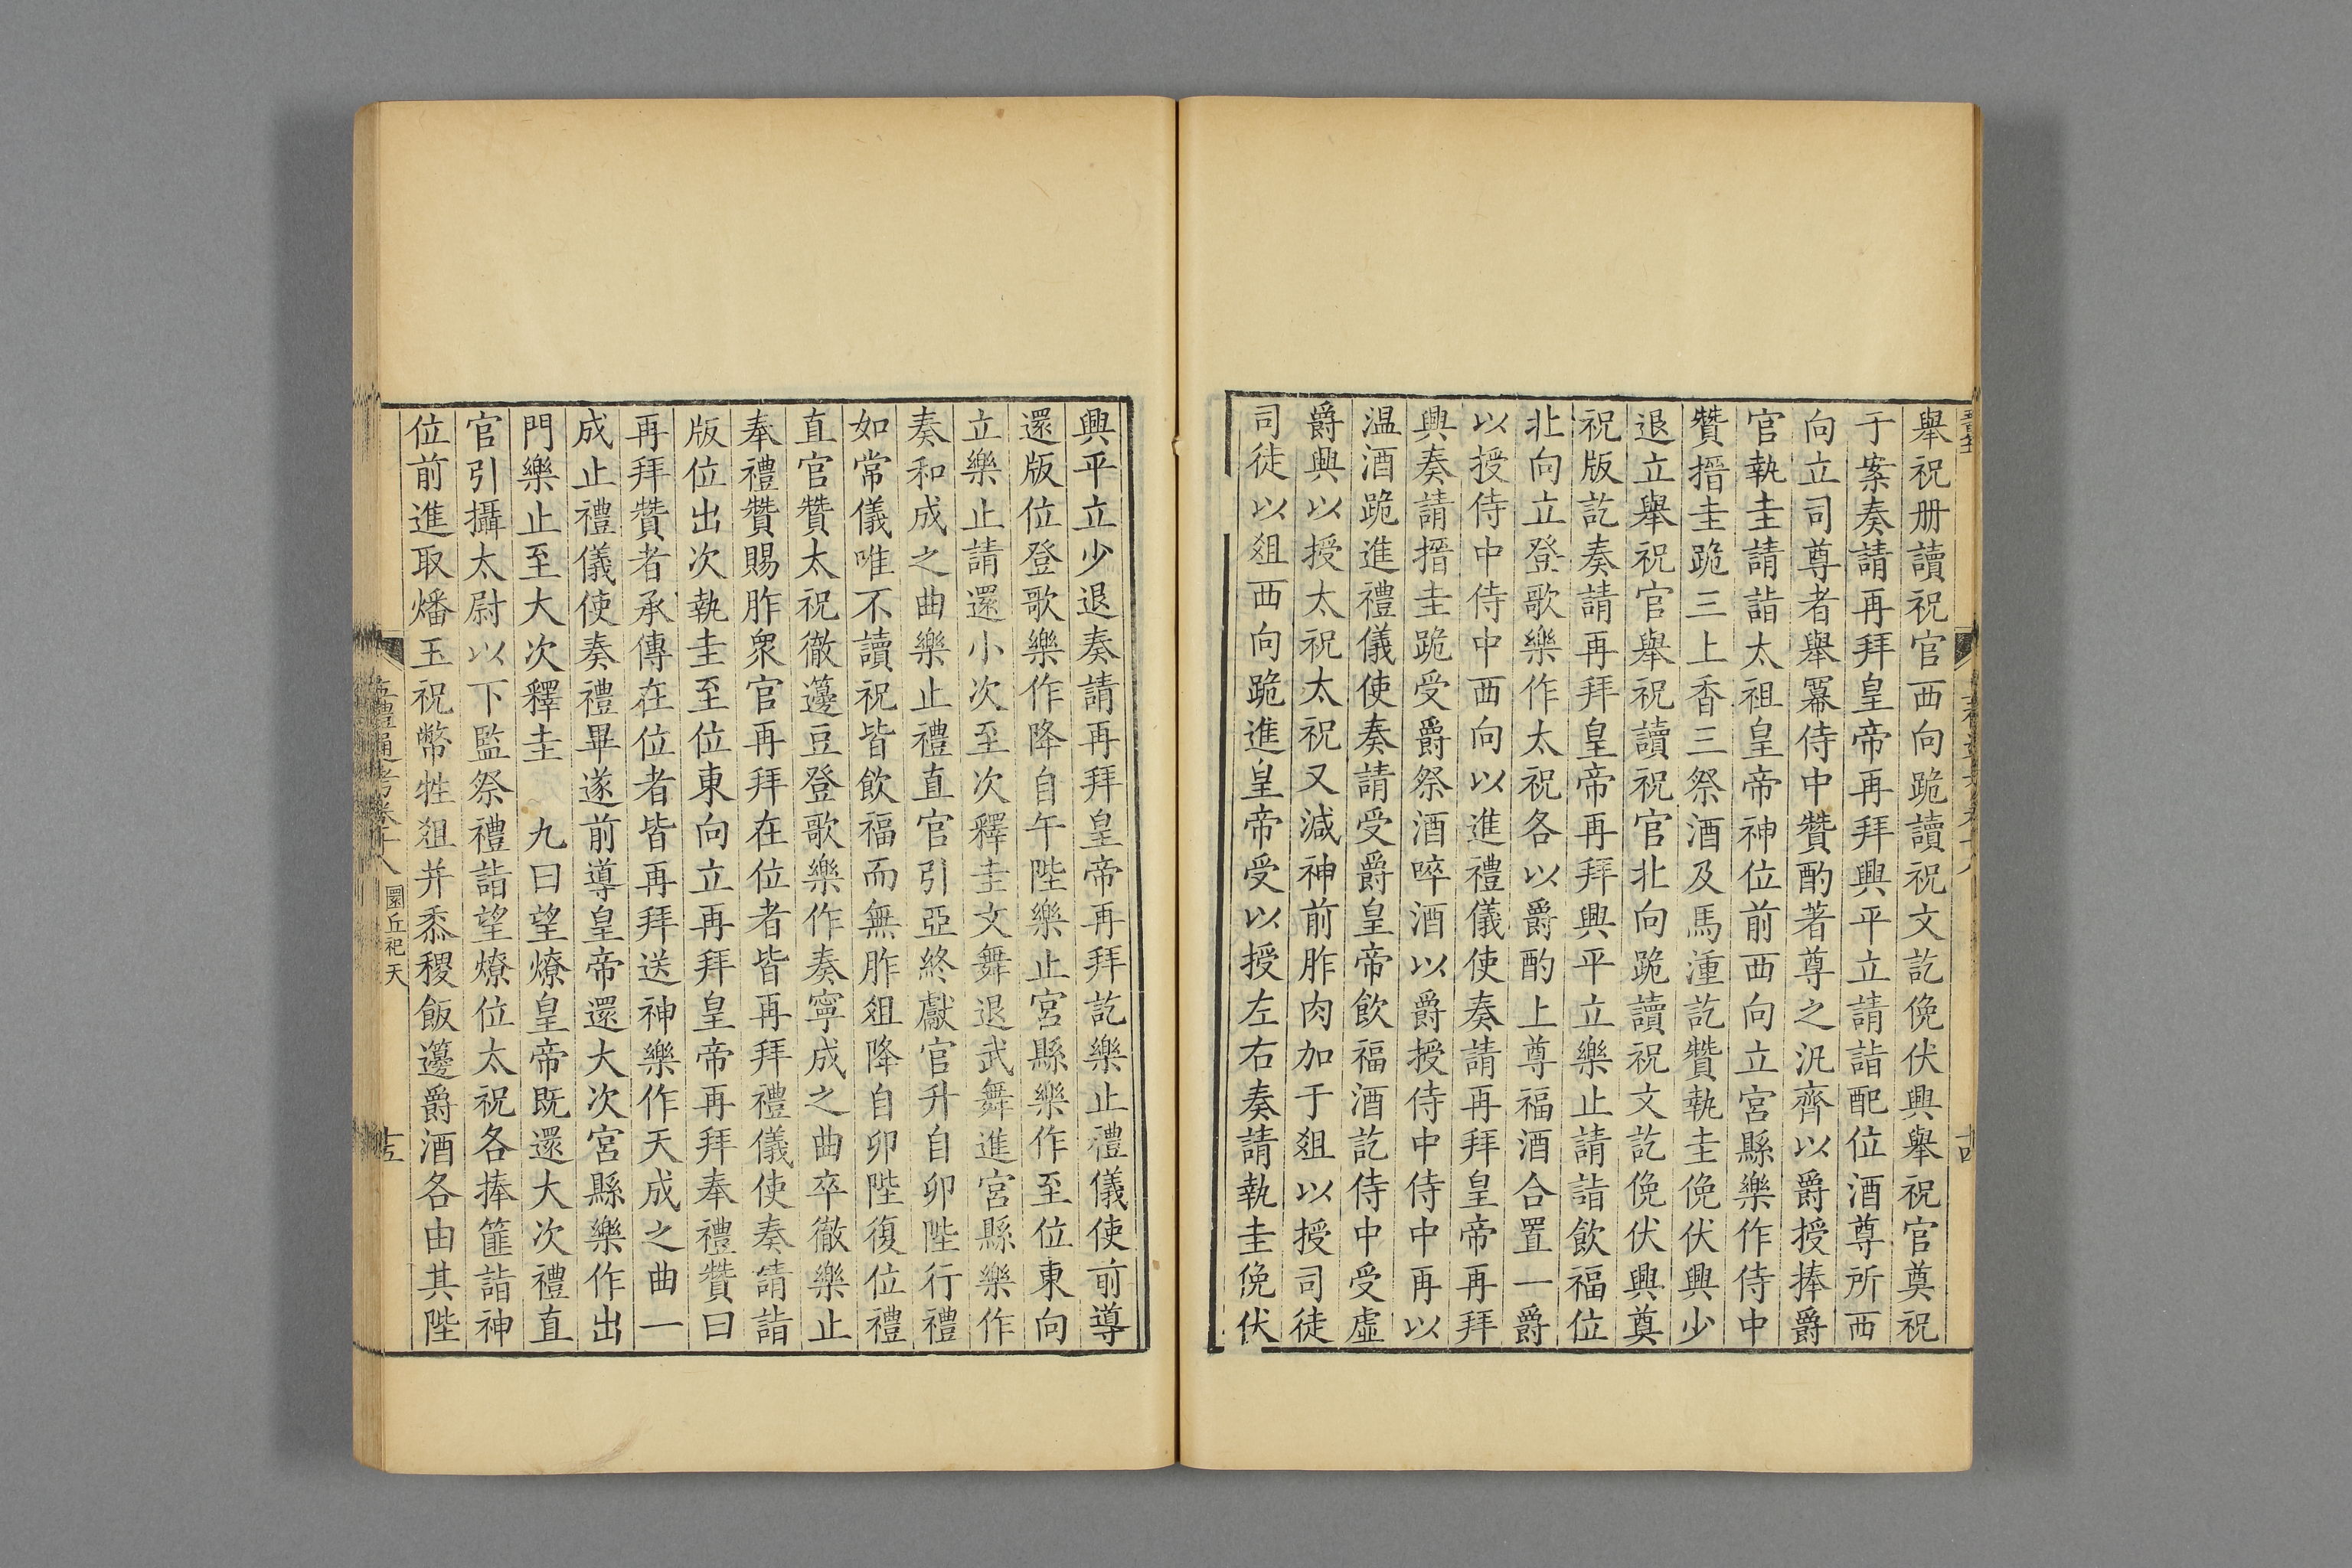 舉祝册讀祝官西向跪讀祝文訖俛伏興舉祝官奠祝
于案奏請再拜皇帝再拜興平立請詣配位酒尊所西
向立司尊者舉冪侍中贊酌著尊之汎齊以爵授捧爵
官執圭請詣太祖皇帝神位前西向立宮縣樂作侍中
贊搢圭跪三上香三祭酒及馬湩訖贊執圭俛伏興少
退立舉祝官舉祝讀祝官北向跪讀祝文訖俛伏興奠
祝版訖奏請再拜皇帝再拜興平立樂止請詣飲福位
北向立登歌樂作太祝各以爵酌上尊福酒合置一爵
以授侍中侍中西向以進禮儀使奏請再拜皇帝再拜
興奏請搢圭跪受爵祭酒啐酒以爵授侍中侍中再以
温酒跪進禮儀使奏請受爵皇帝飲福酒訖侍中受虛
爵興以授太祝太祝又減神前胙肉加于俎以授司徒
司徒以俎西向跪進皇帝受以授左右奏請執圭俛伏
興平立少退奏請再拜皇帝再拜訖樂止禮儀使前導
還版位登歌樂作降自午陛樂止宮縣樂作至位東向
立樂止請還小次至次釋圭文舞退武舞進宮縣樂作
奏和成之曲樂止禮直官引亞終獻官升自卯陛行禮
如常儀唯不讀祝皆飲福而無胙俎降自卯陛復位禮
直官贊太祝徹籩豆登歌樂作奏寧成之曲卒徹樂止
奉禮贊賜胙衆官再拜在位者皆再拜禮儀使奏請詣
版位出次執圭至位東向立再拜皇帝再拜奉禮贊曰
再拜贊者承傳在位者皆再拜送神樂作天成之曲一
成止禮儀使奏禮畢遂前導皇帝還大次宮縣樂作出
門樂止至大次釋圭　九曰望燎皇帝既還大次禮直
官引攝太尉以下監祭禮詣望燎位太祝各捧篚詣神
位前進取燔玉祝幣牲俎并黍稷飯籩爵酒各由其陛
五禮通考卷十八　圜丘祀天　十五